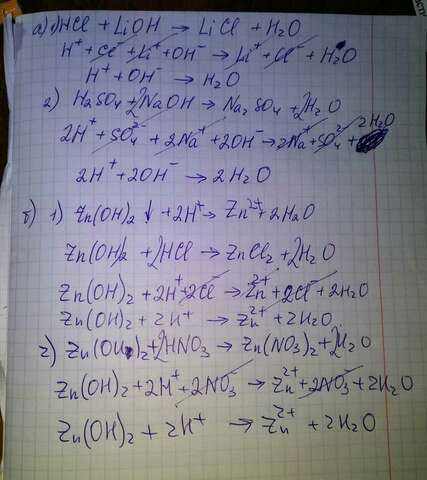 а) 1) HCl + LiOH → LiCl + H₂O
H⁺ + Cl⁻ + Li⁺ + OH⁻ → Li⁺ + Cl⁻ + H₂O
H⁺ + OH⁻ → H₂O
2) H₂SO₄ + 2NaOH → Na₂SO₄ + 2H₂O
2H⁺ + SO₄²⁻ + 2Na⁺ + 2OH⁻ → 2Na⁺ + SO₄²⁻ + 2H₂O
2H⁺ + 2OH⁻ → 2H₂O
б) 1) Zn(OH)₂ ↓ + 2H⁺ → Zn²⁺ + 2H₂O
Zn(OH)₂ + 2HCl → ZnCl₂ + 2H₂O
Zn(OH)₂ + 2H⁺ + 2Cl⁻ → Zn²⁺ + 2Cl⁻ + 2H₂O
Zn(OH)₂ + 2H⁺ → Zn²⁺ + 2H₂O
2) Zn(OH)₂ + 2HNO₃ → Zn(NO₃)₂ + 2H₂O
Zn(OH)₂ + 2H⁺ + 2NO₃⁻ → Zn²⁺ + 2NO₃⁻ + 2H₂O
Zn(OH)₂ + 2H⁺ → Zn²⁺ + 2H₂O